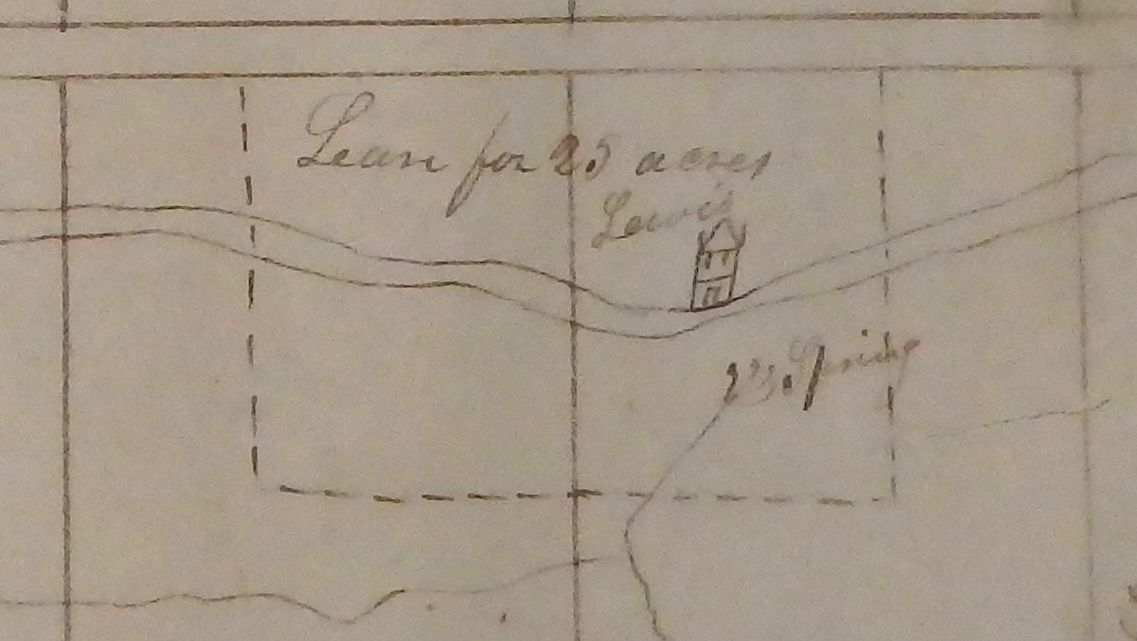 Lease for 25 acres
Lewis
Spring